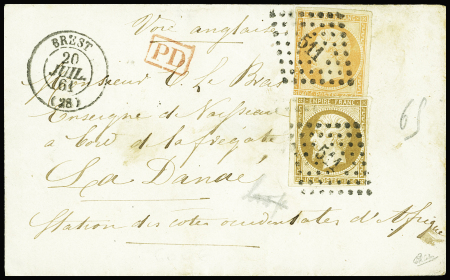 Voie anglaise
BREST
20
JUIL.
61
(28)
PD
Monsieur V. Le Bras
Enseigne de Vaisseau
à bord de la frégate
La Danaé
Station des cotes occidentales d'Afrique
511
EMPIRE FRANC.
511
65